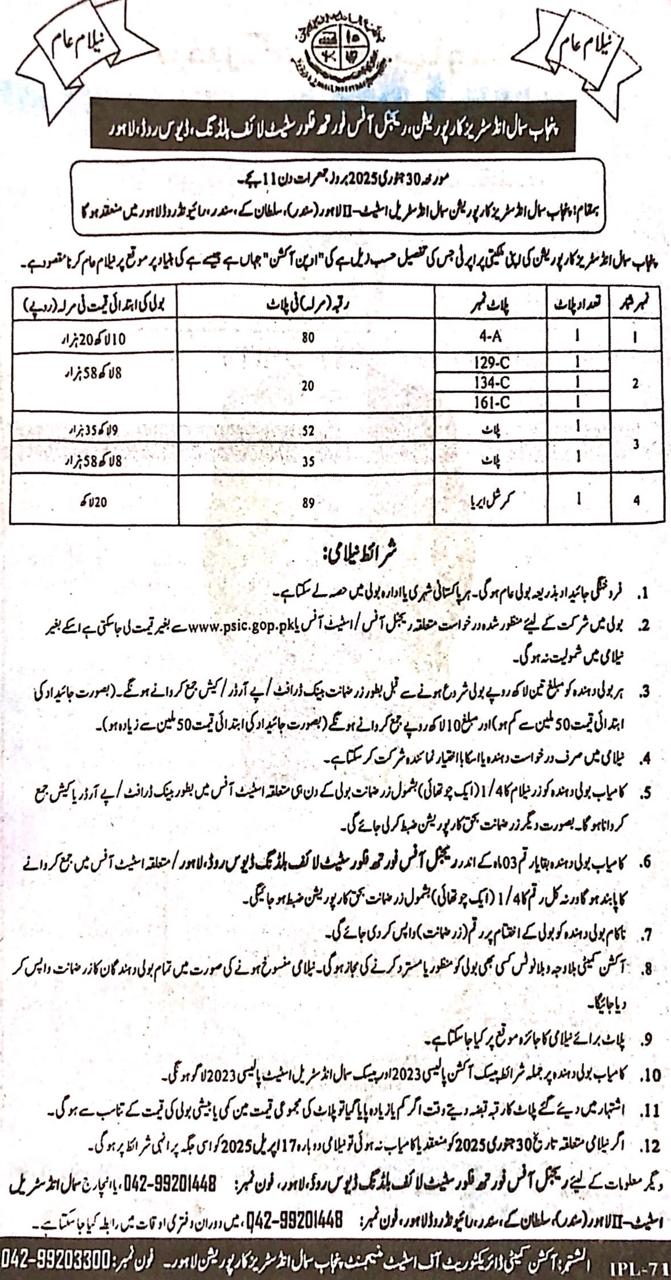 نیلام عام
نیلام عام
پنجاب سمال انڈسٹریز کارپوریشن، ریجنل آفس فورتھ فلور سٹیٹ لائف بلڈنگ، ڈیوس روڈ، لاہور
مورخہ 30 جنوری 2025 بروز جمعرات دن 11 بجے۔
بمقام: پنجاب سمال انڈسٹریز کارپوریشن سمال انڈسٹریل اسٹیٹ-II لاہور (سندر)، سلطان کے، سندر، رائیونڈ روڈ لاہور میں منعقد ہوگا
پنجاب سمال انڈسٹریز کارپوریشن کی اپنی ملکیتی پراپرٹی جس کی تفصیل حسب ذیل ہے کی "اوپن آکشن" جہاں ہے جیسے ہے کی بنیاد پر موقع پر نیلام عام کرنا مقصود ہے۔
نمبر شمار تعداد پلاٹ پلاٹ نمبر رقبہ (مرلہ) فی پلاٹ بولی کی ابتدائی قیمت فی مرلہ (روپے)
1 1 4-A 80 10 لاکھ 20 ہزار
2 1 129-C 20 8 لاکھ 58 ہزار
1 134-C
1 161-C
3 1 پلاٹ 52 9 لاکھ 35 ہزار
1 پلاٹ 35 8 لاکھ 58 ہزار
4 1 کمرشل ایریا 89 20 لاکھ
شرائط نیلامی:
1. فروختگی جائیداد بذریعہ بولی عام ہوگی۔ ہر پاکستانی شہری یا ادارہ بولی میں حصہ لے سکتا ہے۔
2. بولی میں شرکت کے لیئے منظور شدہ درخواست متعلقہ ریجنل آفس / اسٹیٹ آفس یا www.psic.gop.pk سے بغیر قیمت لی جاسکتی ہے اسکے بغیر
نیلامی میں شمولیت نہ ہوگی۔
3. ہر بولی دہندہ کو مبلغ تین لاکھ روپے بولی شروع ہونے سے قبل بطور زر ضمانت بینک ڈرافٹ / پے آرڈر / کیش جمع کروانے ہونگے۔ (بصورت جائیداد کی
ابتدائی قیمت 50 ملین سے کم ہو) اور مبلغ 10 لاکھ روپے جمع کروانے ہونگے (بصورت جائیداد کی ابتدائی قیمت 50 ملین سے زیادہ ہو)۔
4. نیلامی میں صرف درخواست دہندہ یا اسکا با اختیار نمائندہ شرکت کر سکتا ہے۔
5. کامیاب بولی دہندہ کو زر نیلام کا 1/4 (ایک چوتھائی) بشمول زر ضمانت بولی کے دن ہی متعلقہ اسٹیٹ آفس میں بطور بینک ڈرافٹ / پے آرڈر یا کیش جمع
کروانا ہوگا۔ بصورت دیگر زر ضمانت بحق کارپوریشن ضبط کر لی جائے گی۔
6. کامیاب بولی دہندہ بقایا رقم 03 ماہ کے اندر ریجنل آفس فورتھ فلور سٹیٹ لائف بلڈنگ ڈیوس روڈ، لاہور / متعلقہ اسٹیٹ آفس میں جمع کروانے
کا پابند ہوگا ورنہ کل رقم کا 1/4 (ایک چوتھائی) بشمول زر ضمانت بحق کارپوریشن ضبط ہو جائیگی۔
7. ناکام بولی دہندہ کو بولی کے اختتام پر رقم (زر ضمانت) واپس کر دی جائے گی۔
8. آکشن کمیٹی بلا وجہ و بلا نوٹس کسی بھی بولی کو منظور یا مسترد کرنے کی مجاز ہوگی۔ نیلامی منسوخ ہونے کی صورت میں تمام بولی دہندگان کا زر ضمانت واپس کر
دیا جائیگا۔
9. پلاٹ برائے نیلامی کا جائزہ موقع پر کیا جاسکتا ہے۔
10. کامیاب بولی دہندہ پر جملہ شرائط پیسک آکشن پالیسی 2023 اور پیسک سمال انڈسٹریل اسٹیٹ پالیسی 2023 لاگو ہونگی۔
11. اشتہار میں دیئے گئے پلاٹ کا رقبہ قبضہ دیتے وقت اگر کم یا زیادہ پایا گیا تو پلاٹ کی مجموعی قیمت میں کمی یا بیشی بولی کی قیمت کے تناسب سے ہوگی۔
12. اگر نیلامی متعلقہ تاریخ 30 جنوری 2025 کو منعقد یا کامیاب نہ ہوئی تو نیلامی دوبارہ 17 اپریل 2025 کو اسی جگہ پر انہی شرائط پر ہوگی۔
دیگر معلومات کے لیئے ریجنل آفس فورتھ فلور سٹیٹ لائف بلڈنگ ڈیوس روڈ، لاہور، فون نمبر: 042-99201448، یا انچارج سمال انڈسٹریل
اسٹیٹ-II لاہور (سندر)، سلطان کے، سندر، رائیونڈ روڈ لاہور، فون نمبر: 042-99201448، میں دوران دفتری اوقات میں رابطہ کیا جاسکتا ہے۔
المشتہر: آکشن کمیٹی ڈائریکٹوریٹ آف اسٹیٹ منیجمنٹ پنجاب سمال انڈسٹریز کارپوریشن لاہور۔ فون نمبر: 042-99203300
IPL-71